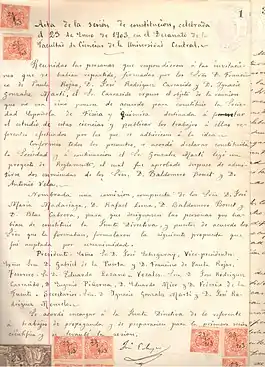 1
Acta de la sesión de constitución, celebrada
el 23 de Enero de 1903, en el Decanato de la
Facultad de Ciencias de la Universidad Central.
Reunidas las personas que respondieron a las invitaciones
que se habían repartido, firmadas por los Sres. D. Francisco
de Paula Rojas, D. José Rodríguez Carracido y D. Ignacio
González Martí, el Sr. Carracido expuso el objeto de la reunión
que no era otro
de acuerdo para constituir la Sociedad
Española de Física y Química, destinada a
el estudio de estas ciencias y publicar los trabajos a ellas
referentes efectuados por los que se adhirieran a la idea.
Conformes todos los presentes, se acordó declarar constituida
la Sociedad y a continuación el Sr. González Martí leyó un
proyecto de Reglamento, el cual fue aprobado después de
dos enmiendas de los Sres. D. Baldomero Bonet y D.
Antonio Vela.
Nombrada una comisión, compuesta de los Sres. D. José
María Madariaga, D. Rafael Luna, D. Baldomero Bonet y
D. Blas Cabrera, para que designaran las personas que habían
de constituir la Junta Directiva, y puestos de acuerdo los
Sres. que la formaban, formularon la siguiente propuesta que
fue aceptada por unanimidad.
Presidente: Excmo. Sr. D. José Echegaray. Vicepresidentes:
Sr. D. Gabriel de la Puerta y D. Francisco de Paula Rojas.
Tesorero: Sr. D. Eduardo Lozano. Vocales: Sres. D. José Rodríguez
Carracido, D. Eugenio Piñerúa, D. Eduardo Mier y D. Federico de la
Fuente. Secretarios: Sres. D. Ignacio González Martí y D. José
Rodríguez Mourelo.
Se acordó encargar a la Junta Directiva de lo referente
a trabajos de propaganda y de preparación para la primera
sesión.
José Echegaray